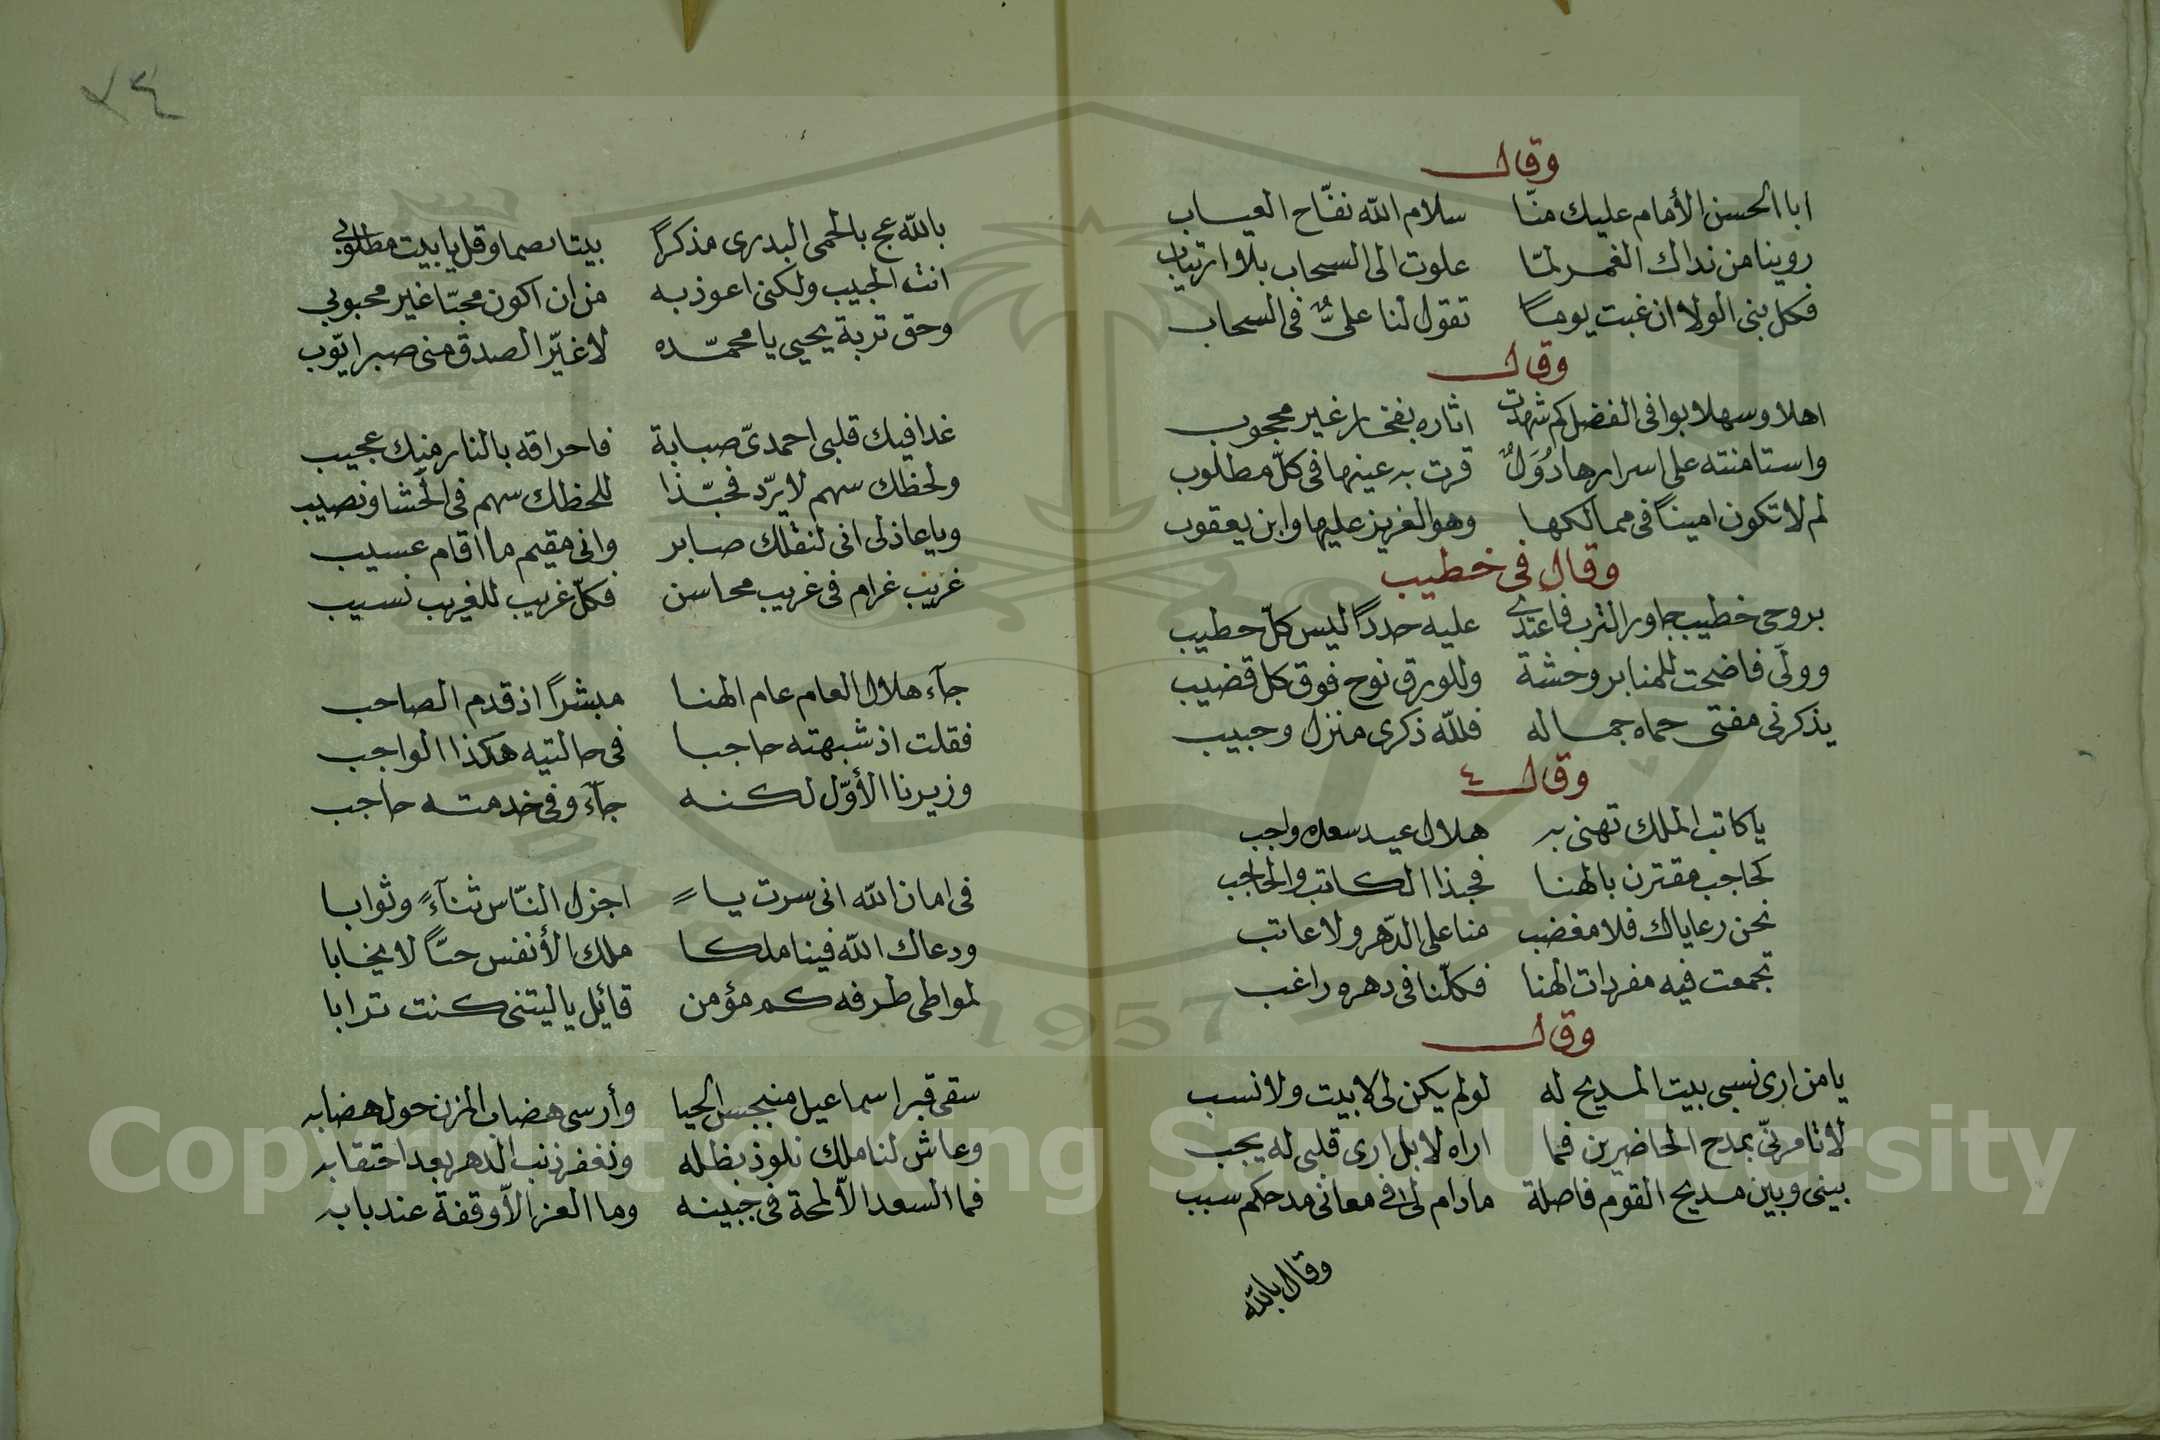 وقال
ابا الحسن الأمام عليك منّا سلام الله نفّاح العياب
روينا من نداك الغمر لمّا علوت الى السحاب بلا ارتياب
فكل بنى الولا ان غبت يوماً تقول لنا علىٌّ فى السحاب
وقال
اهلا وسهلا بوافى الفضل كم شهدت اثاره بفخار غير محجوب
واستامنته على اسرارها دُوَلٌ قرت به عينها فى كلّ مطلوب
لم لا تكون اميناً فى ممالكها وهو العزيز عليها وابن يعقوب
وقال فى خطيب
بروحى خطيب جاور الترب فاغتدى عليه حدداً ليس كلّ خطيب
وولّى فاضحت للمنابر وحشة وللورق نوح فوق كل قضيب
يذكرنى مفتى حماه جماله فلله ذكرى منزل وحبيب
وقال ٤
يا كاتب الملك تهنى به هلال عيد سعده واجب
كحاجب مقترن بالهنا فحبذا الكاتب والحاجب
نحن رعاياك فلا مغضب منا على الدّهر ولا عاتب
تجمعت فيه مفردات الهنا فكلّنا فى دهره راغب
وقال
يا من ارى نسبى بيت المديح له لو لم يكن لى لا بيت ولا نسب
لا تامرنّى بمدح الحاضرين فما اراه لا بل ارى قلبى له يجب
بينى وبين مديح القوم فاصلة ما دام لى فى معانى مدحكم سبب
وقال بالله
٢٤
بالله عج بالحمى البدرى مذكراً بيتا وقل يا بيت مطلوبى
انت الحبيب ولكنى اعوذ به من ان اكون محبّا غير محبوبى
وحق تربة يحيى يا محمّده لا غيّر الصدق منى صبر ايّوب
غدا فيك قلبى احمدىّ صبابة فاحراقه بالنار منك عجيب
ولحظك سهم لا يردّ فحبّذا للحظك سهم فى الحشا ونصيب
ويا عاذلى انى لنقلك صابر وانى مقيم ما اقام عسيب
غريب غرام فى غريب محاسن فكلّ غريب للغريب نسيب
جآء هلال العام عام الهنا مبشراً اذ قدم الصاحب
فقلت اذ شبهته حاجبا فى حالتيه هكذا الواجب
وزيرنا الأوّل لكنه جآء وفى خدمته حاجب
فى امان الله انى سرت يا اجزل النّاس ثنآءً وثوابا
ودعاك الله فينا ملكا ملك الأنفس حبّاً لا يخابا
لمواطى طرفه كم مؤمن قائل يا ليتنى كنت ترابا
سقى قبر اسماعيل منبجس الحيا وأرسى هضاب المزن حول هضابه
وعاش لنا ملك نلوذ بظله ونغفر ذنب الدهر بعد احتقابه
فما السعد الاّ لمحة فى جبينه وما العز الاّ وقفة عند بابه
Copyright © King Saud University
1957